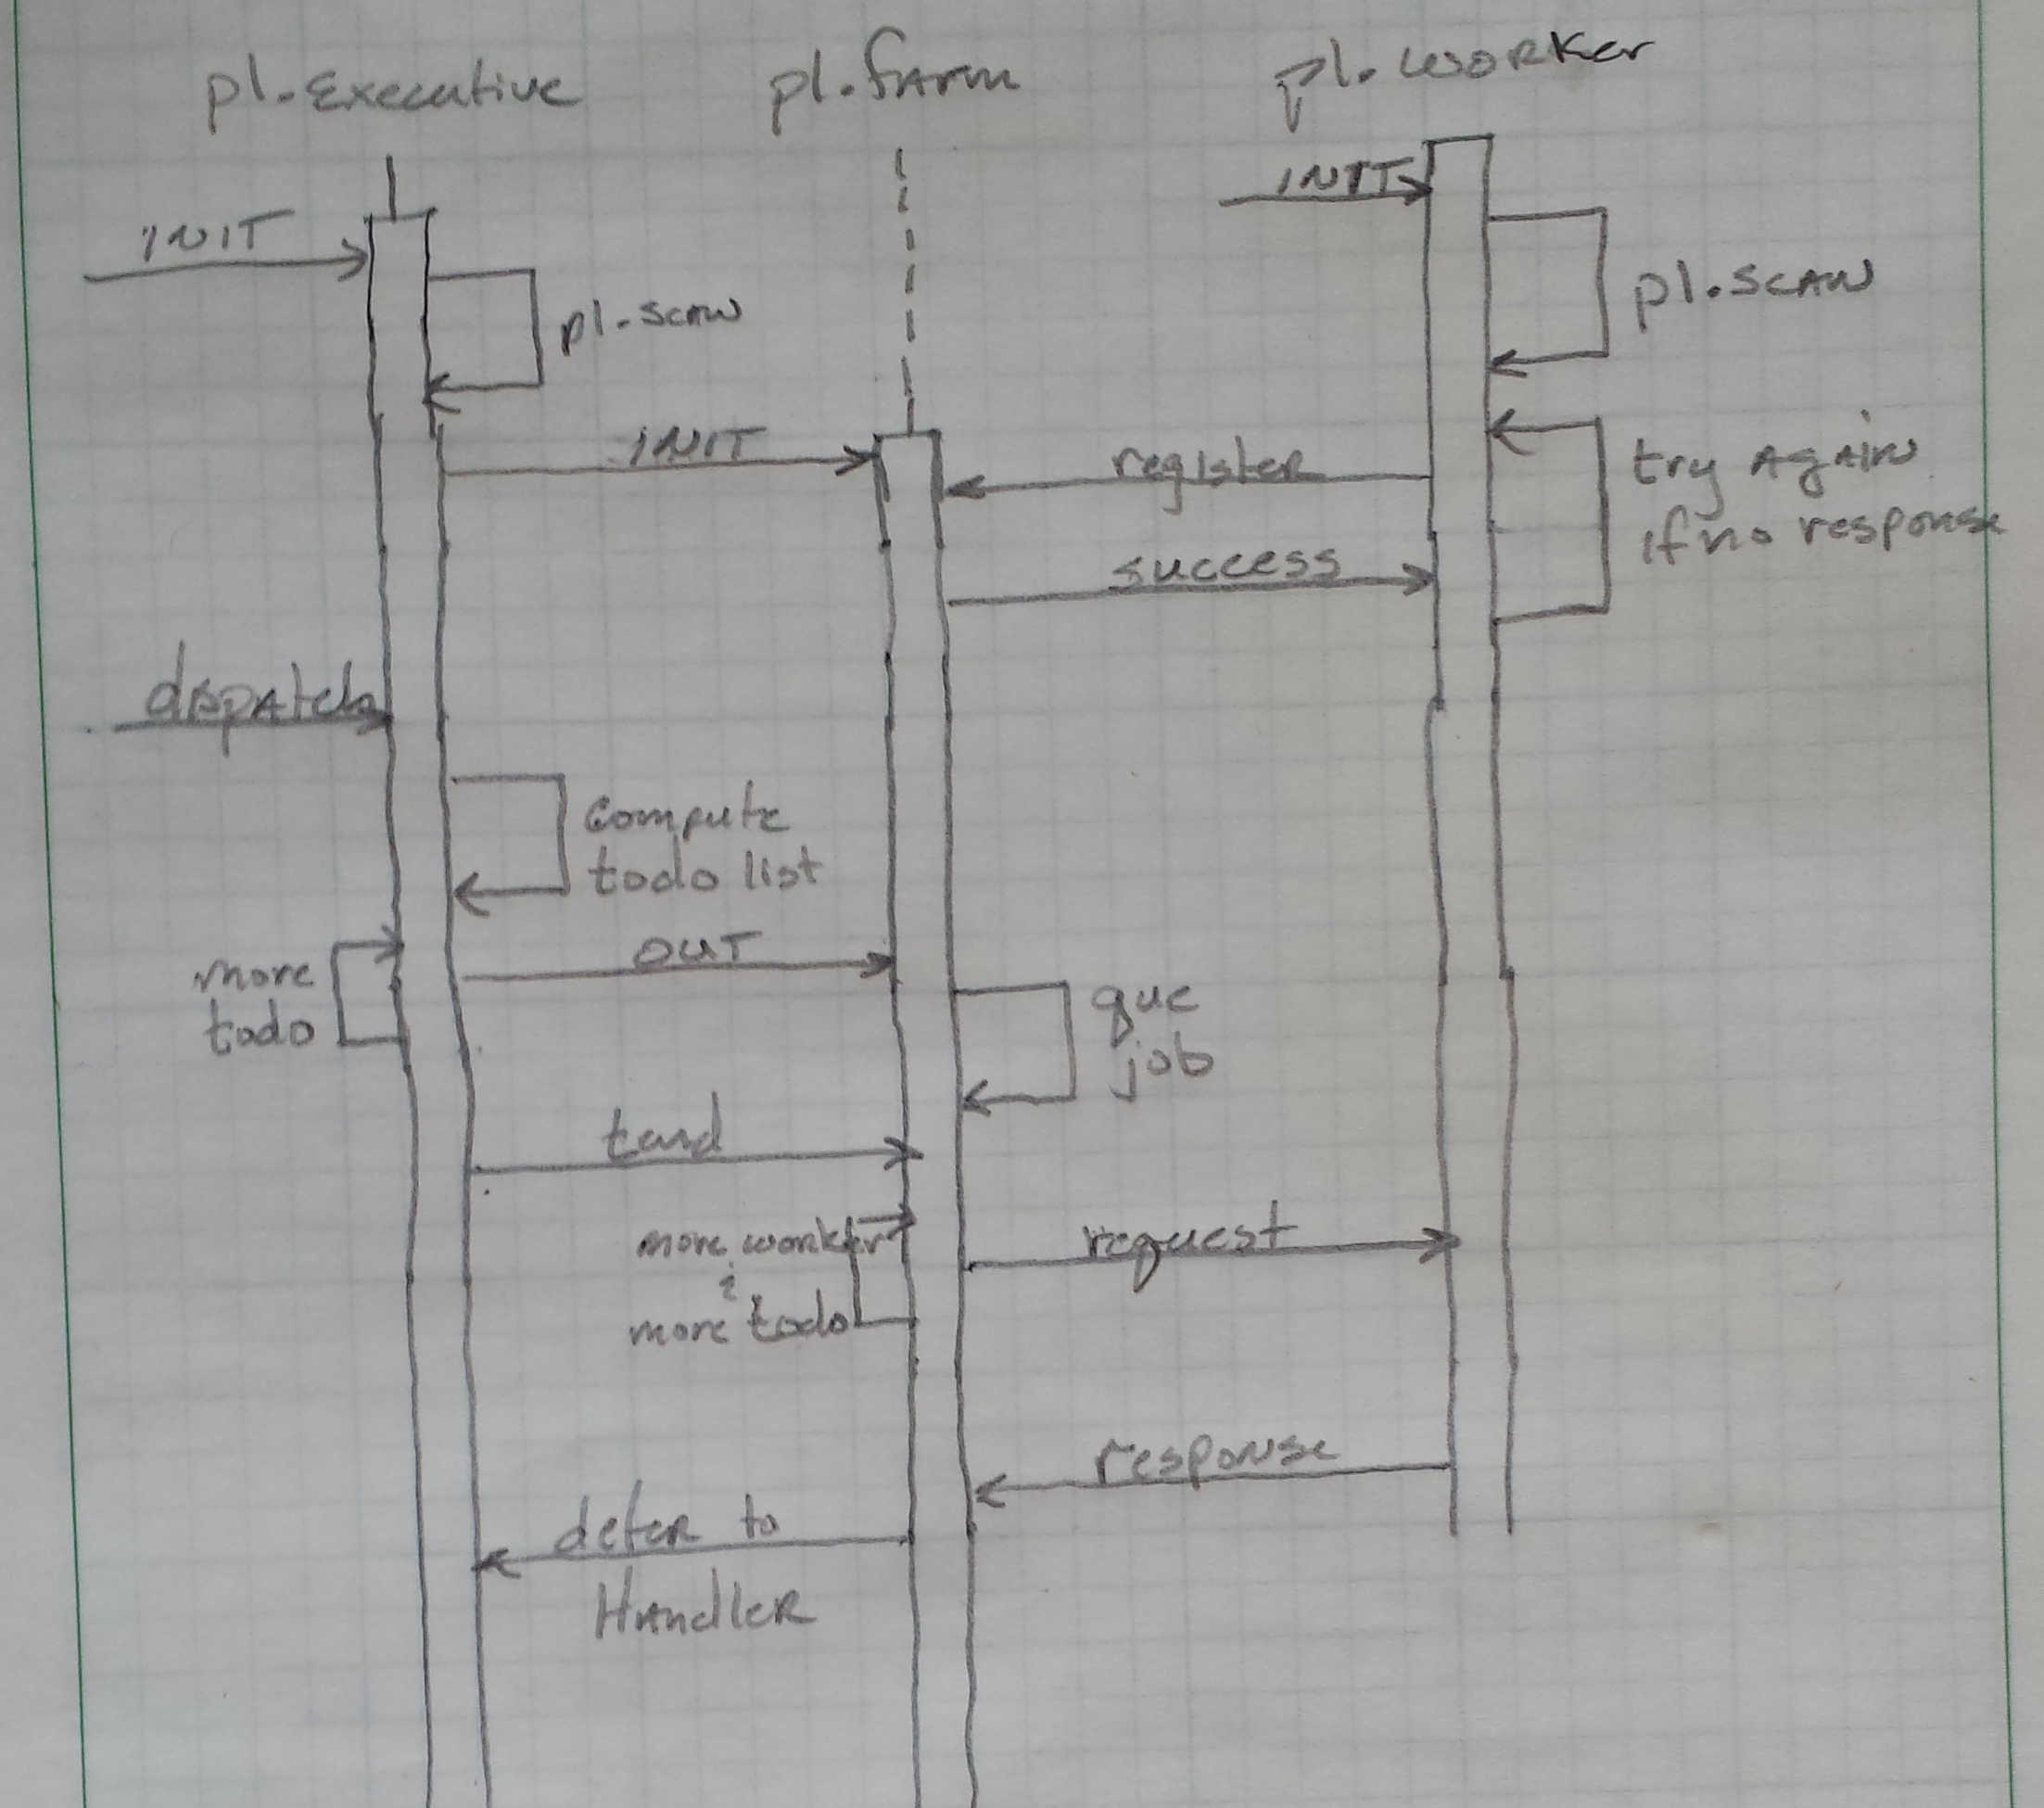 pl.Executive
pl.farm
pl.worker
INIT
INIT
pl.scan
pl.scan
INIT
register
try again
if no response
success
dispatch
compute
todo list
more
todo
out
que
job
tend
more worker
&
more todo
request
response
defer to
Handler